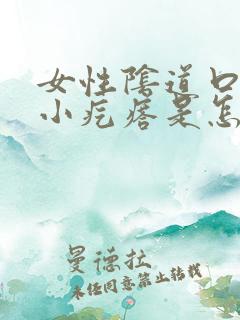 女性陰道口
小疙瘩是怎
曼德拉
未经同意禁止转载